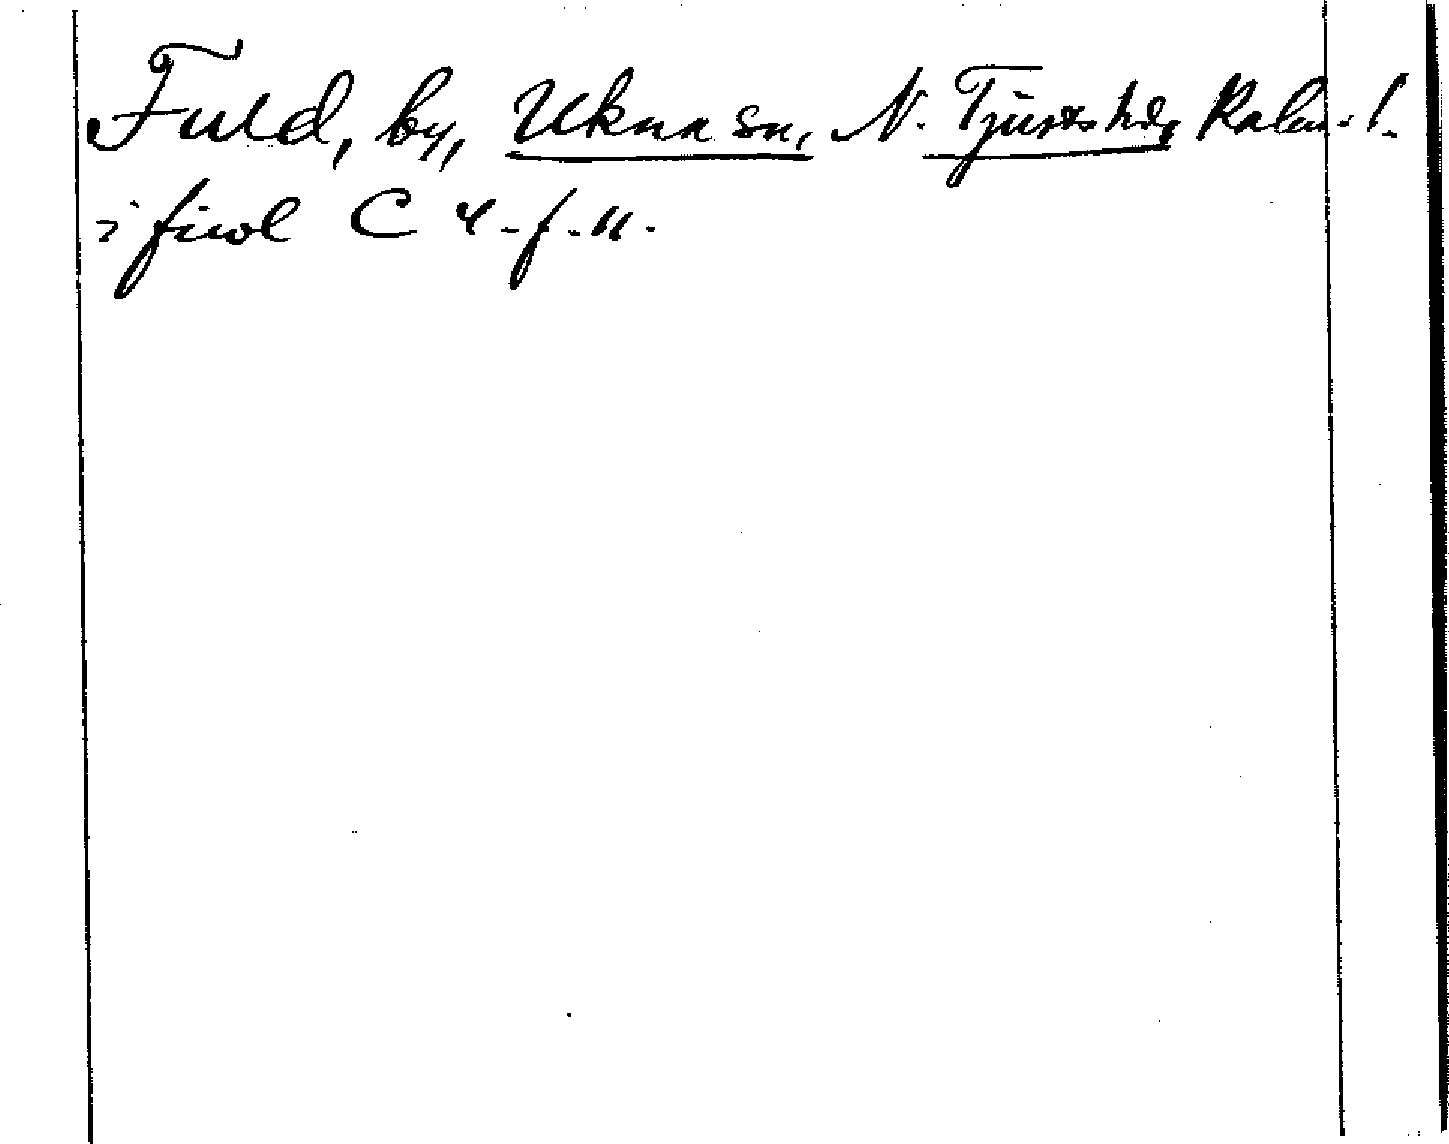 Fuld, by, Ukna sn, N. Tjusts hd, Kalm. l.
i fiwl C 4 - f. 11.